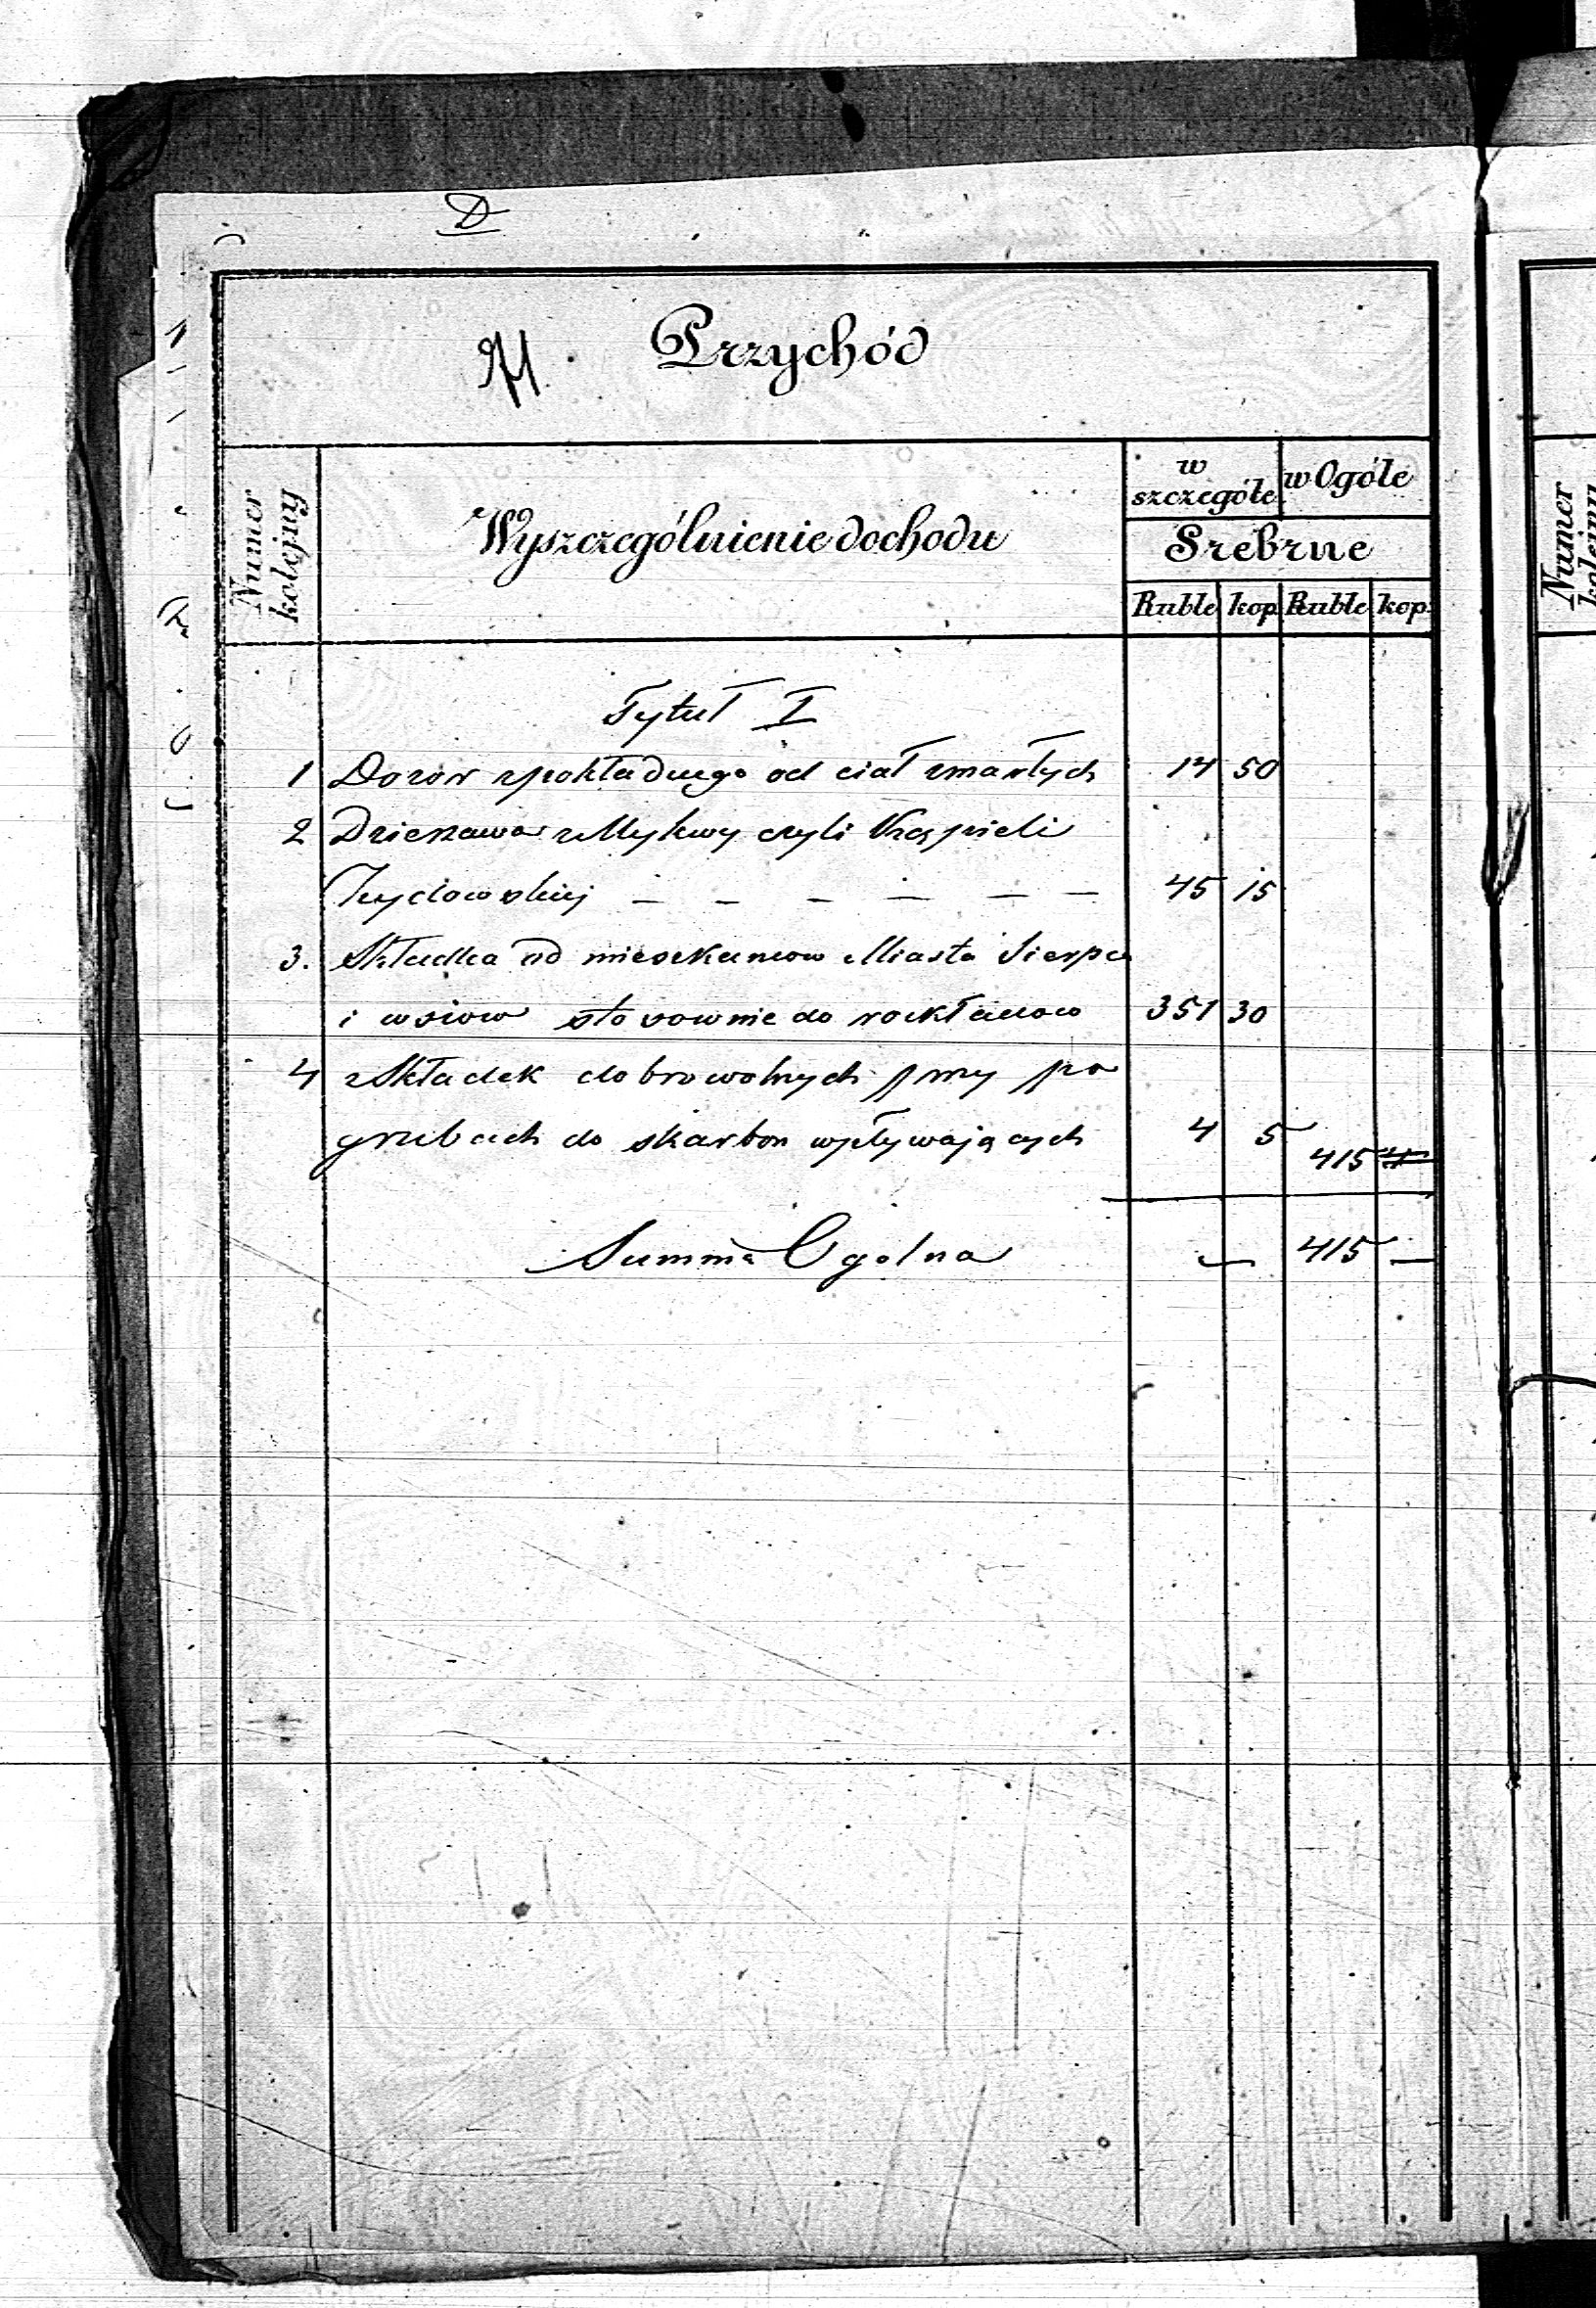 D
Przychód
Numer
kolejny
Wyszczególnienie dochodu
w
szczególe
w Ogóle
Srebrne
Ruble kop Ruble kop:
Tytuł I
1 Dozor zpokładnego od ciał zmarłych 14 50
2 Dzierzawa z Mykwy czyli Kąpieli
Zydowskiej — — — — — — 45 15
3. Składka od mieszkancow Miasta Sierpca
i wsiow stosownie do rozkładow 351 30
4 z Składek dobrowolnych przy po
grzebach do skarbon wpływających 4 5 415
Summa Ogolna — 415 —
Numer